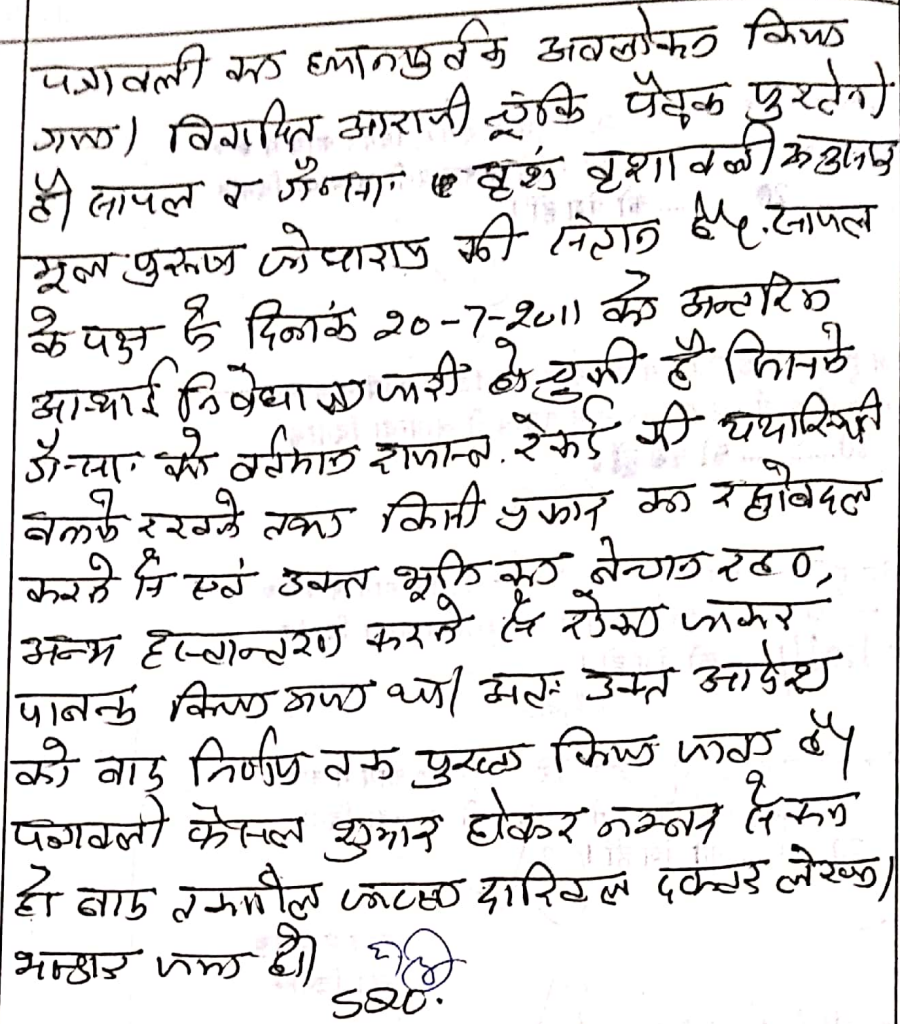 पत्रावली का ध्यानपूर्वक अवलोकन किया
गया। विवादित आराजी चूंकि पैतृक पुश्तैनी
है। सायल व गैरसा. वंश वृशावली के अनुसार
मूल पुरूष जोधाराम की संतान है। सायल
के पक्ष में दिनांक 20-7-2011 को अन्तरिम
अस्थाई निषेधाज्ञा जारी हो चुकी है जिसमें
गै-सा. को वर्तमान राजस्व. रेकर्ड की यथास्थिती
बनाये रखने तथा किसी प्रकार का रद्दोबदल
करने से एवं उक्त भूमि का बेचान रहन,
अन्य हस्तान्तरण करने से रोका जाकर
पाबन्द किया गया था। अतः उक्त आदेश
को वाद निर्णय तक पुख्ता किया जाता है।
पत्रावली फैसल शुमार होकर नम्बर से कम
हो बाद तकमील जाप्ता दाखिल दफ्तर लेखा।
भण्डार जमा हो।
SDO.